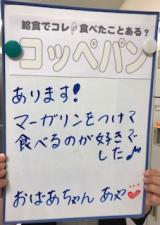 給食でコレ♪食べたことある？
コッペパン
あります！
マーガリンをつけて
食べるのが好きで
した♪
おばあちゃん あや…❤